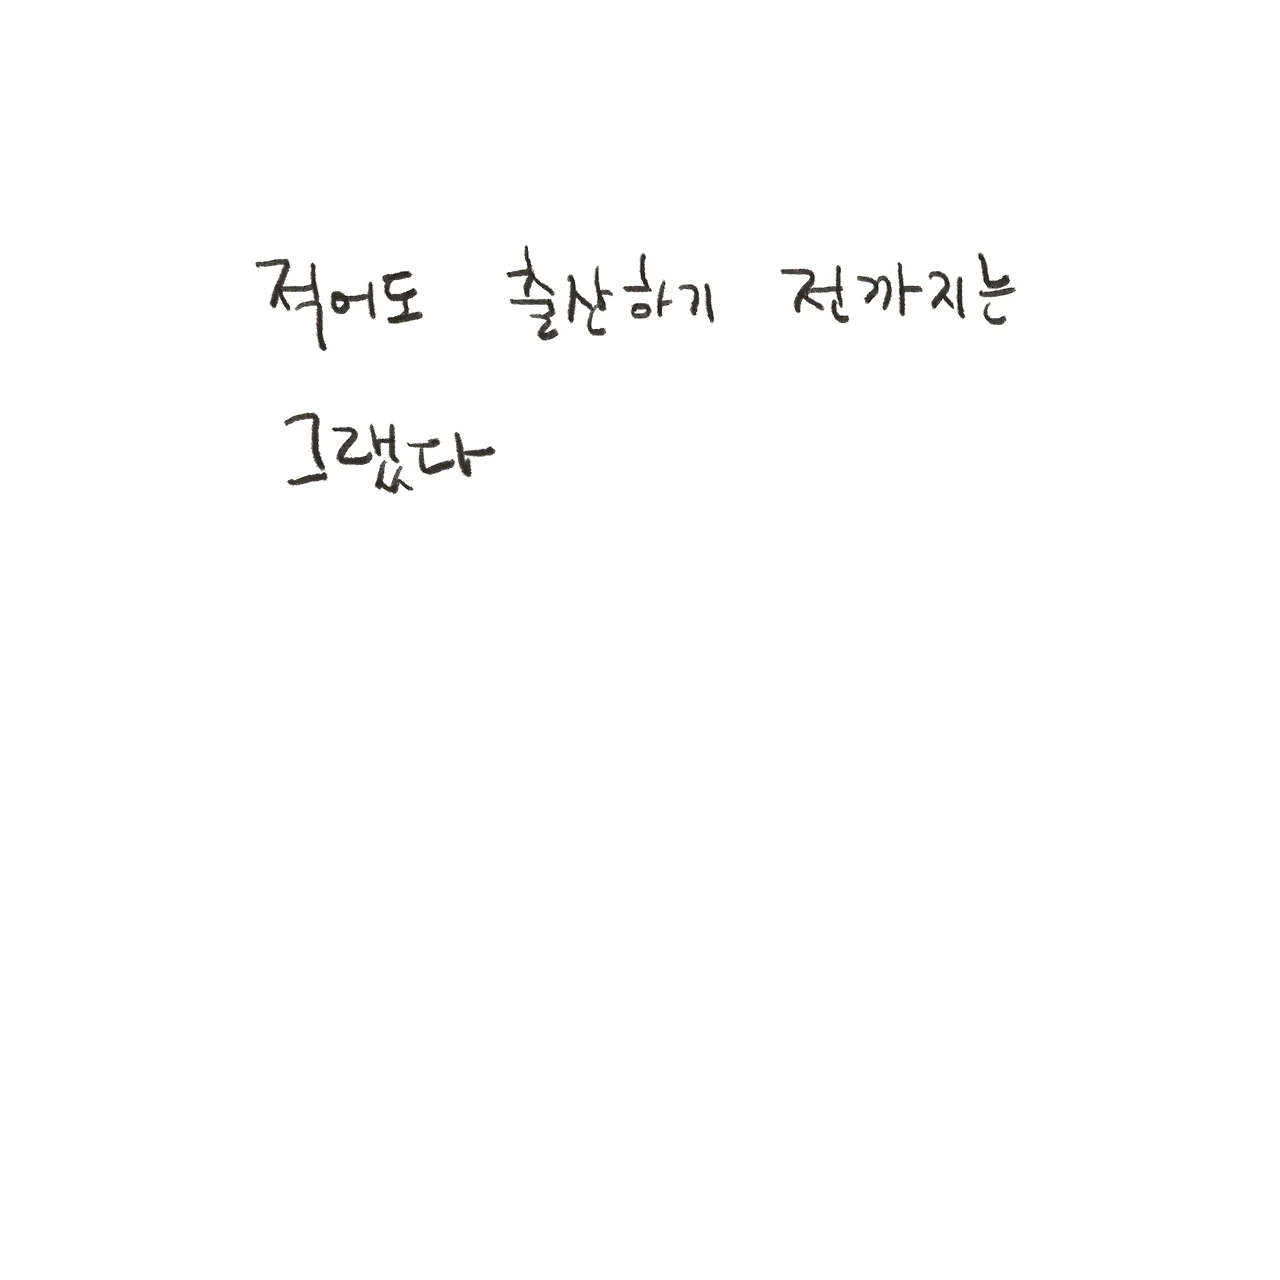 적어도 출산하기 전까지는
그랬다